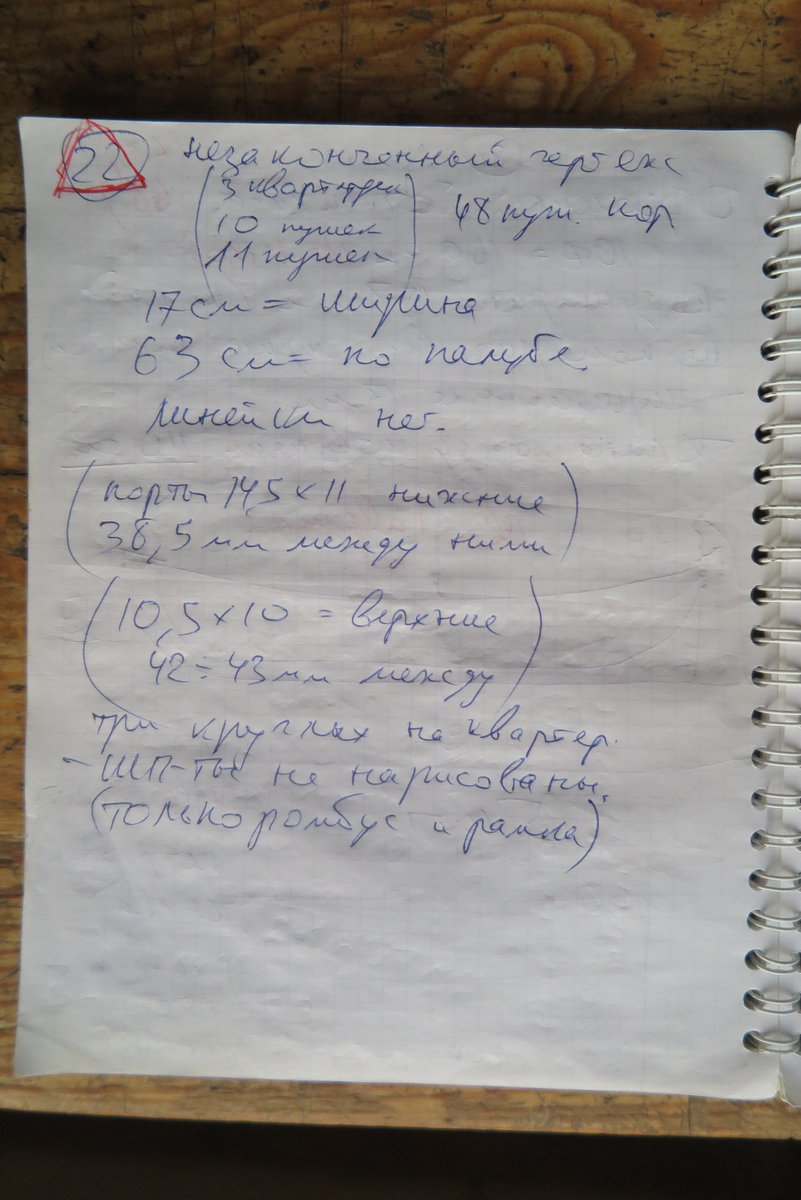 22 незаконченный чертеж
3 квартердек
10 пушек
11 пушек
48 пуш. кор
17 см = ширина
63 см = по палубе
линейки нет.
порты 14,5 × 11 нижние
38,5 мм между ними
10,5 × 10 = верхние
42 ÷ 43 мм между
три круглых на квартер.
- ШП-ты не нарисованы.
(только ромбус и рамка)